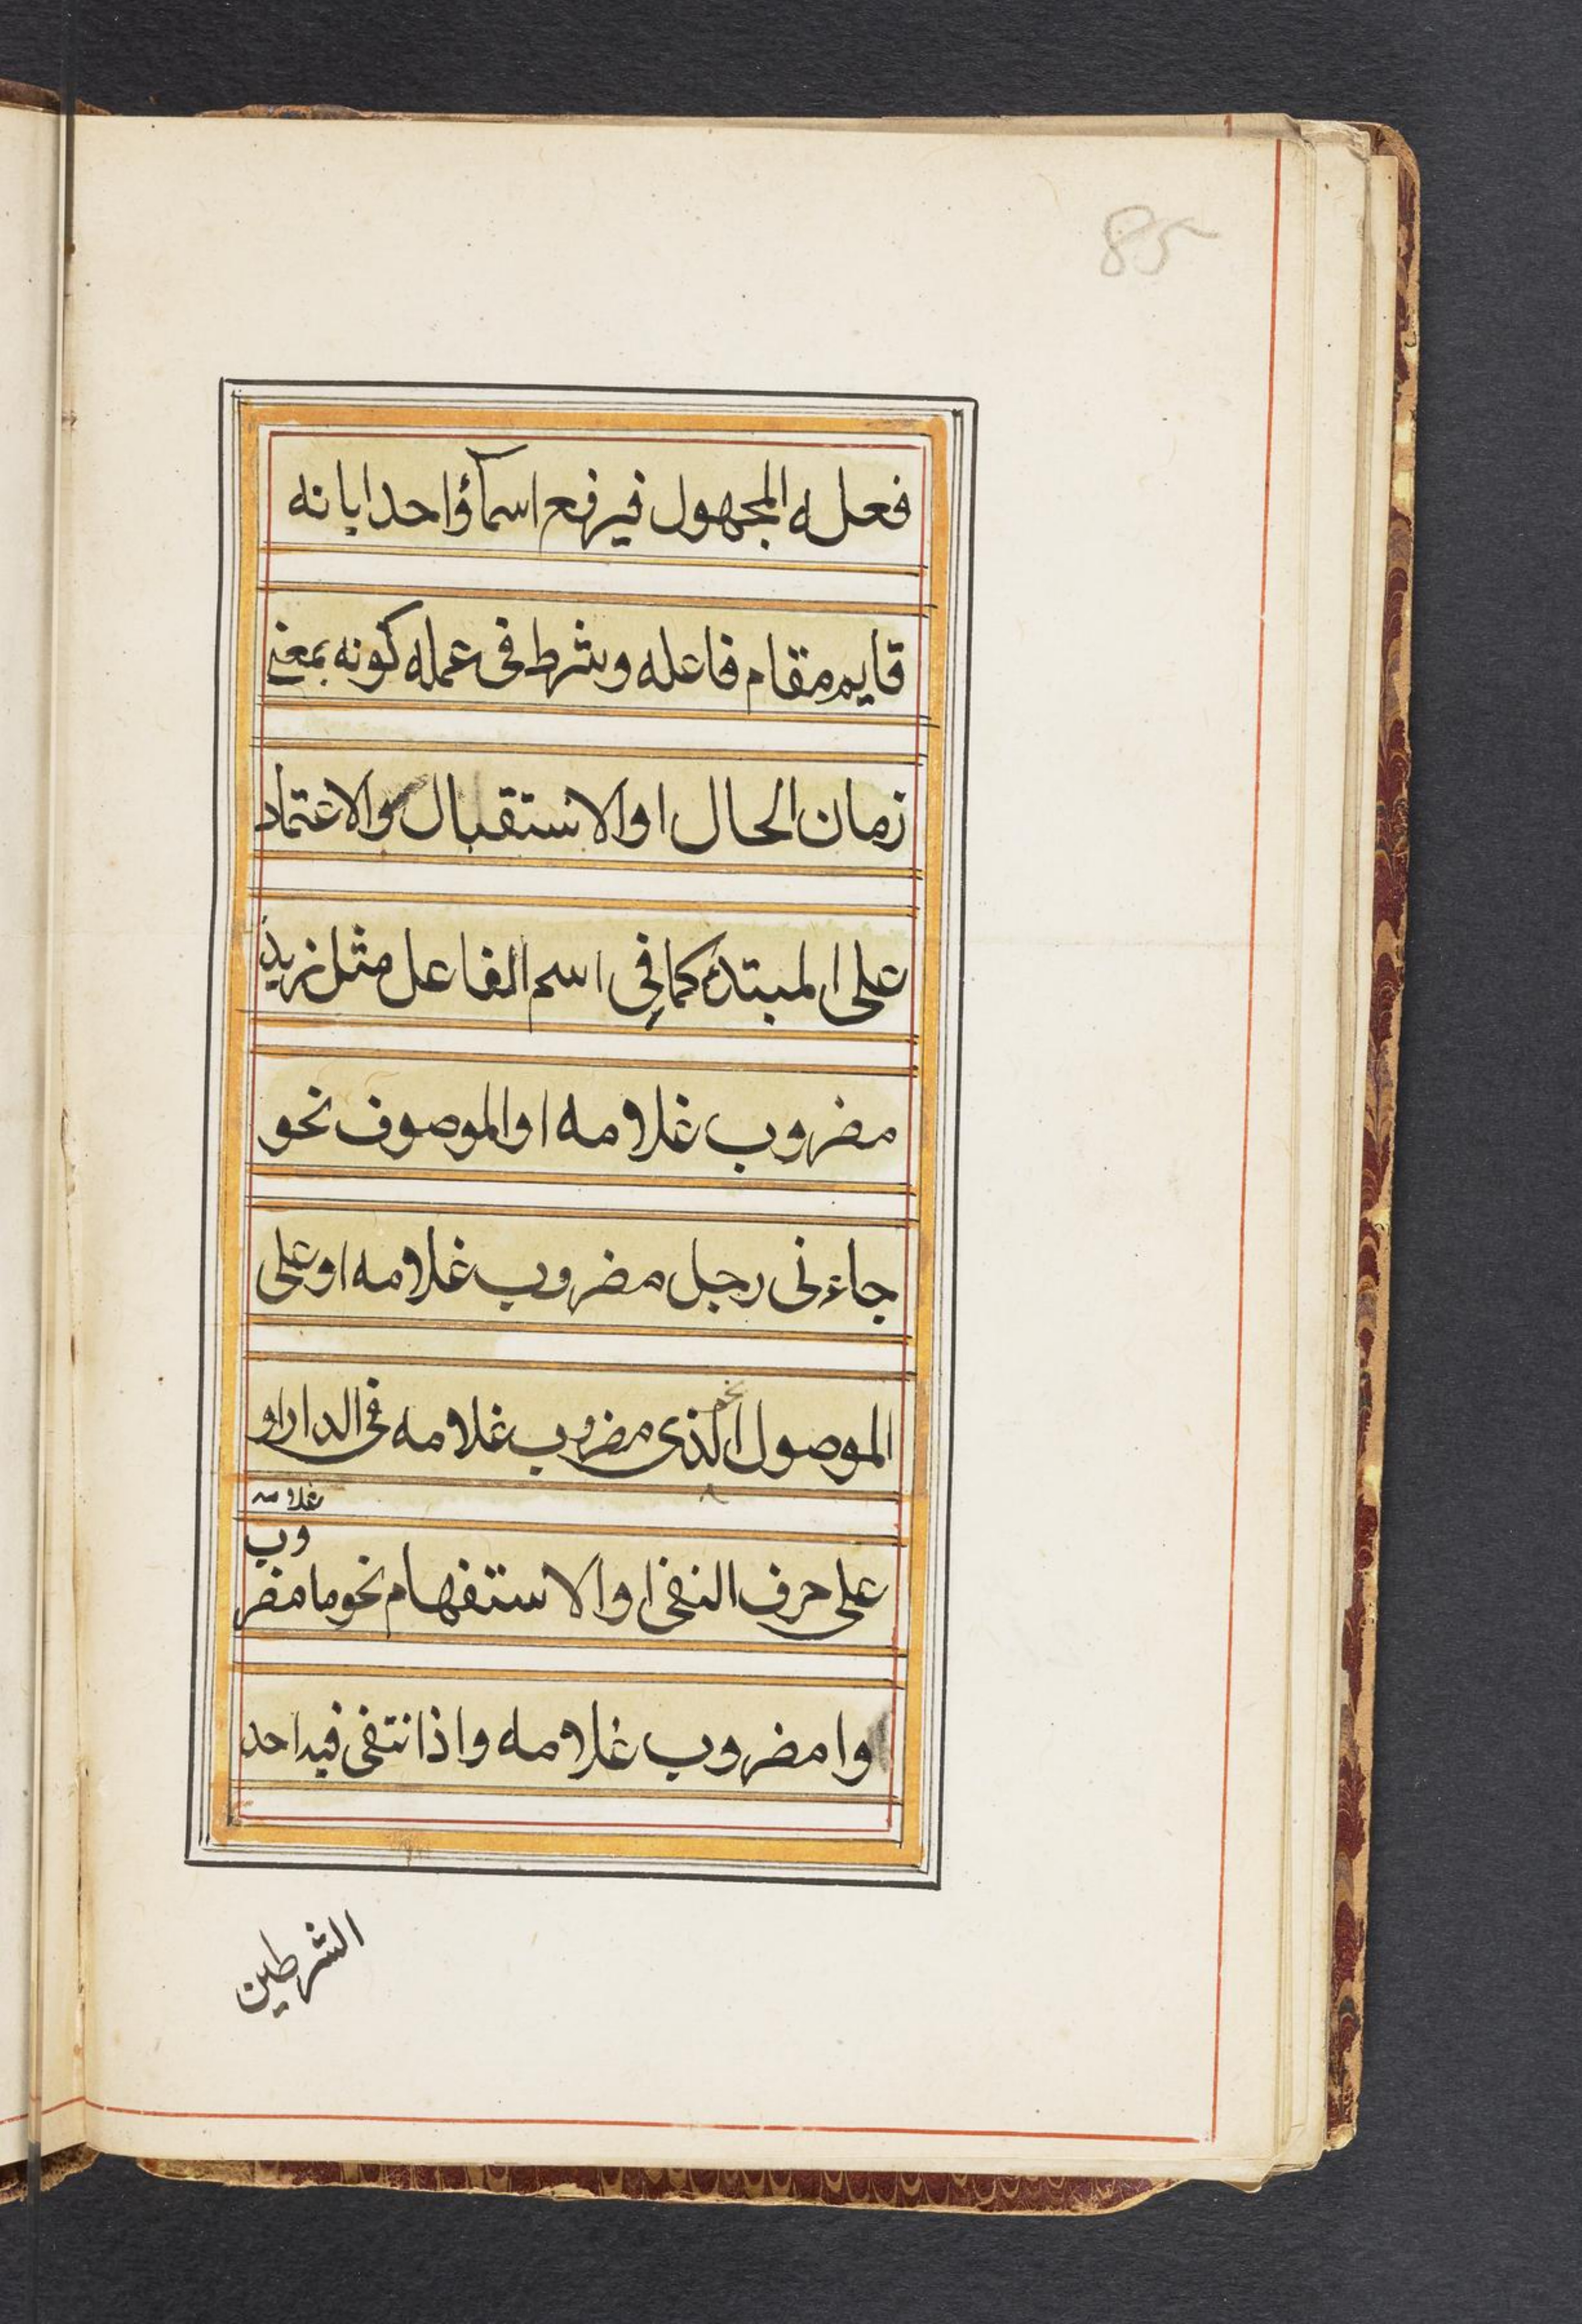 85
فعله المجهول فيرفع اسمآ واحدا بانه
قايم مقام فاعله وشرط فى عمله كونه بمعنى
زمان الحال او الاستقبال والاعتماد
على المبتدء كما فى اسم الفاعل مثل زيد
مضروب غلامه او الموصوف نحو
جاءنى رجل مضروب غلامه او على
الموصول نحو الذى مضروب غلامه فى الدار او
على حرف النفى او الاستفهام نحو ما مضروب غلامه
وا مضروب غلامه واذا نتفى فيه احد
الشرطين